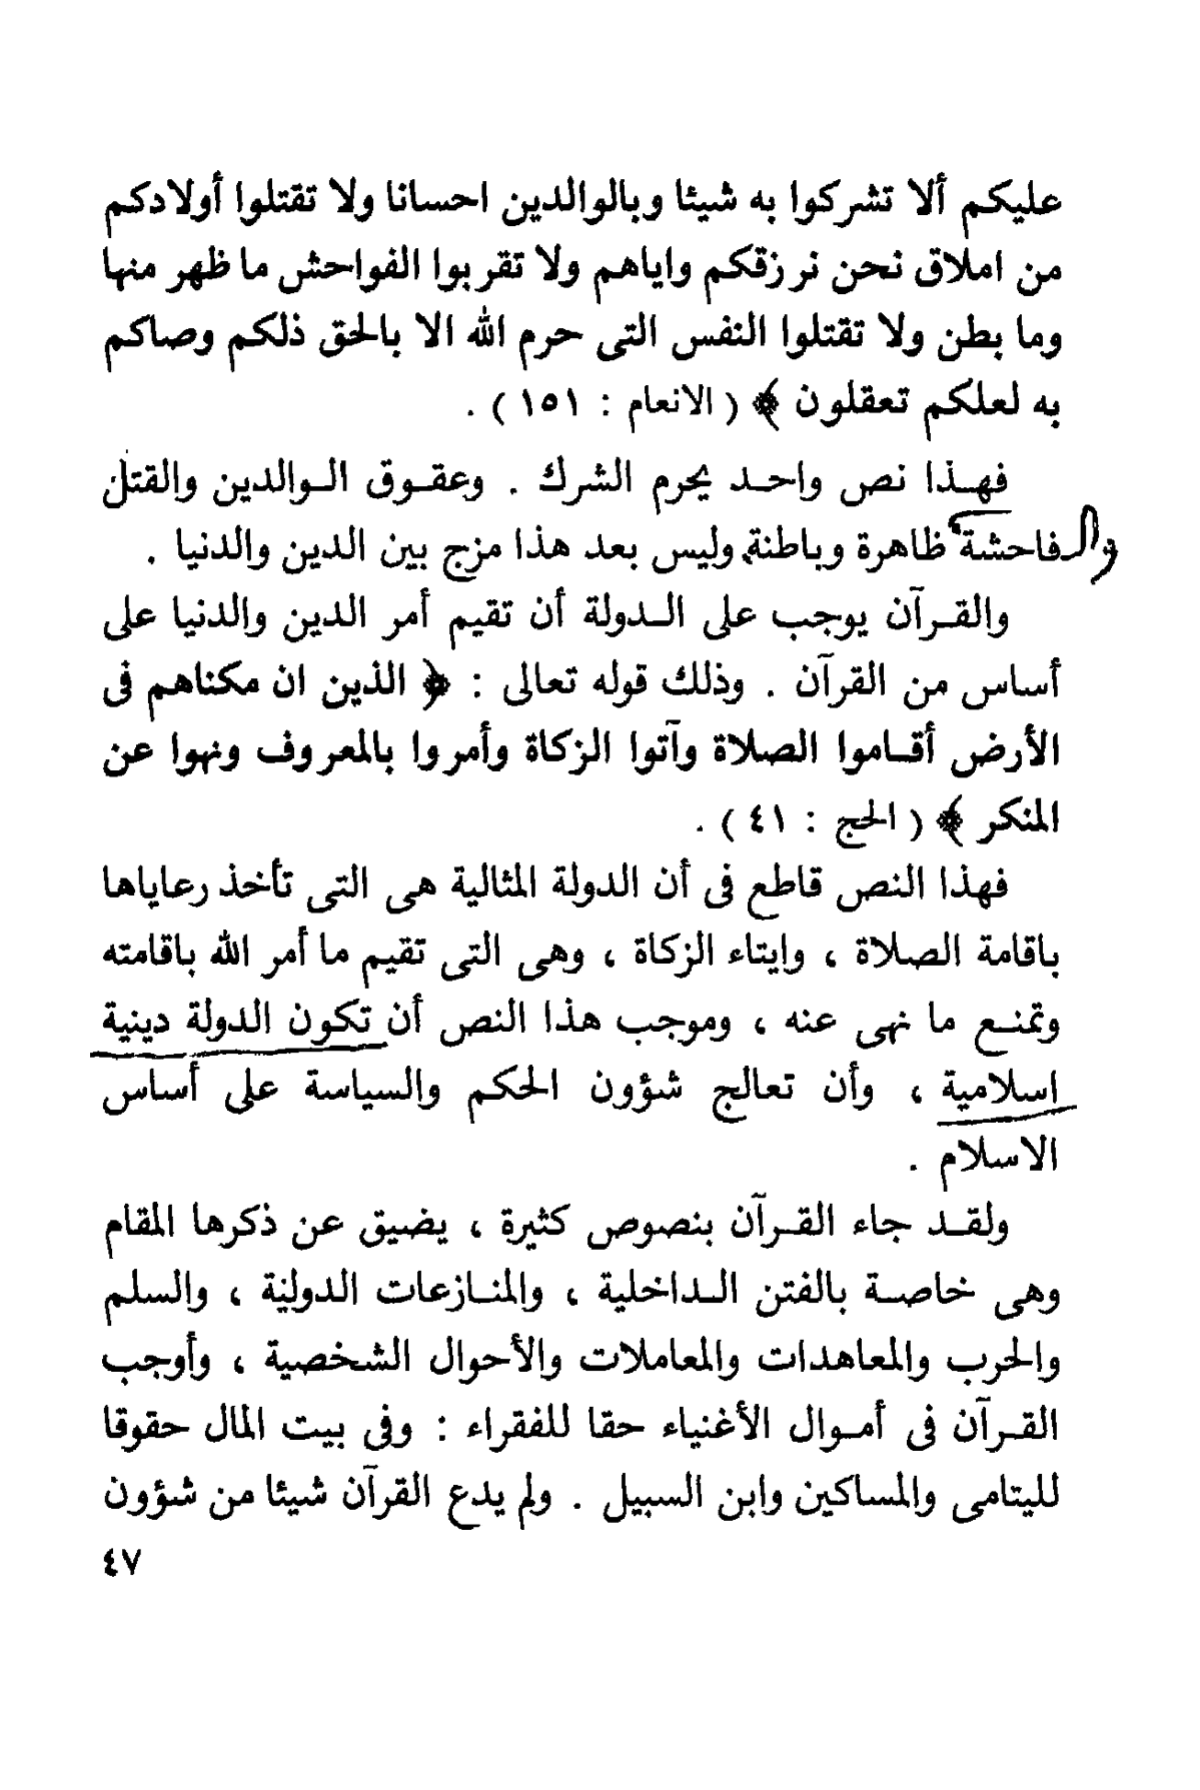 عليكم ألا تشركوا به شيئا وبالوالدين احسانا ولا تقتلوا أولادكم
من املاق نحن نرزقكم واياهم ولا تقربوا الفواحش ما ظهر منها
وما بطن ولا تقتلوا النفس التى حرم الله الا بالحق ذلكم وصاكم
به لعلكم تعقلون ﴾ ( الانعام : ١٥١ ) .
فهذا نص واحد يحرم الشرك . وعقوق الوالدين والقتل
والفاحشة ظاهرة وباطنة. وليس بعد هذا مزج بين الدين والدنيا .
والقرآن يوجب على الدولة أن تقيم أمر الدين والدنيا على
أساس من القرآن . وذلك قوله تعالى : ﴿ الذين ان مكناهم فى
الأرض أقاموا الصلاة وآتوا الزكاة وأمروا بالمعروف ونهوا عن
المنكر ﴾ ( الحج : ٤١ ) .
فهذا النص قاطع فى أن الدولة المثالية هى التى تأخذ رعاياها
باقامة الصلاة ، وإيتاء الزكاة ، وهى التى تقيم ما أمر الله باقامته
وتمنع ما نهى عنه ، وموجب هذا النص أن تكون الدولة دينية
اسلامية ، وأن تعالج شؤون الحكم والسياسة على أساس
الاسلام .
ولقد جاء القرآن بنصوص كثيرة ، يضيق عن ذكرها المقام
وهى خاصة بالفتن الداخلية ، والمنازعات الدولية ، والسلم
والحرب والمعاهدات والمعاملات والأحوال الشخصية ، وأوجب
القرآن فى أموال الأغنياء حقا للفقراء : وفى بيت المال حقوقا
لليتامى والمساكين وابن السبيل . ولم يدع القرآن شيئا من شؤون
٤٧